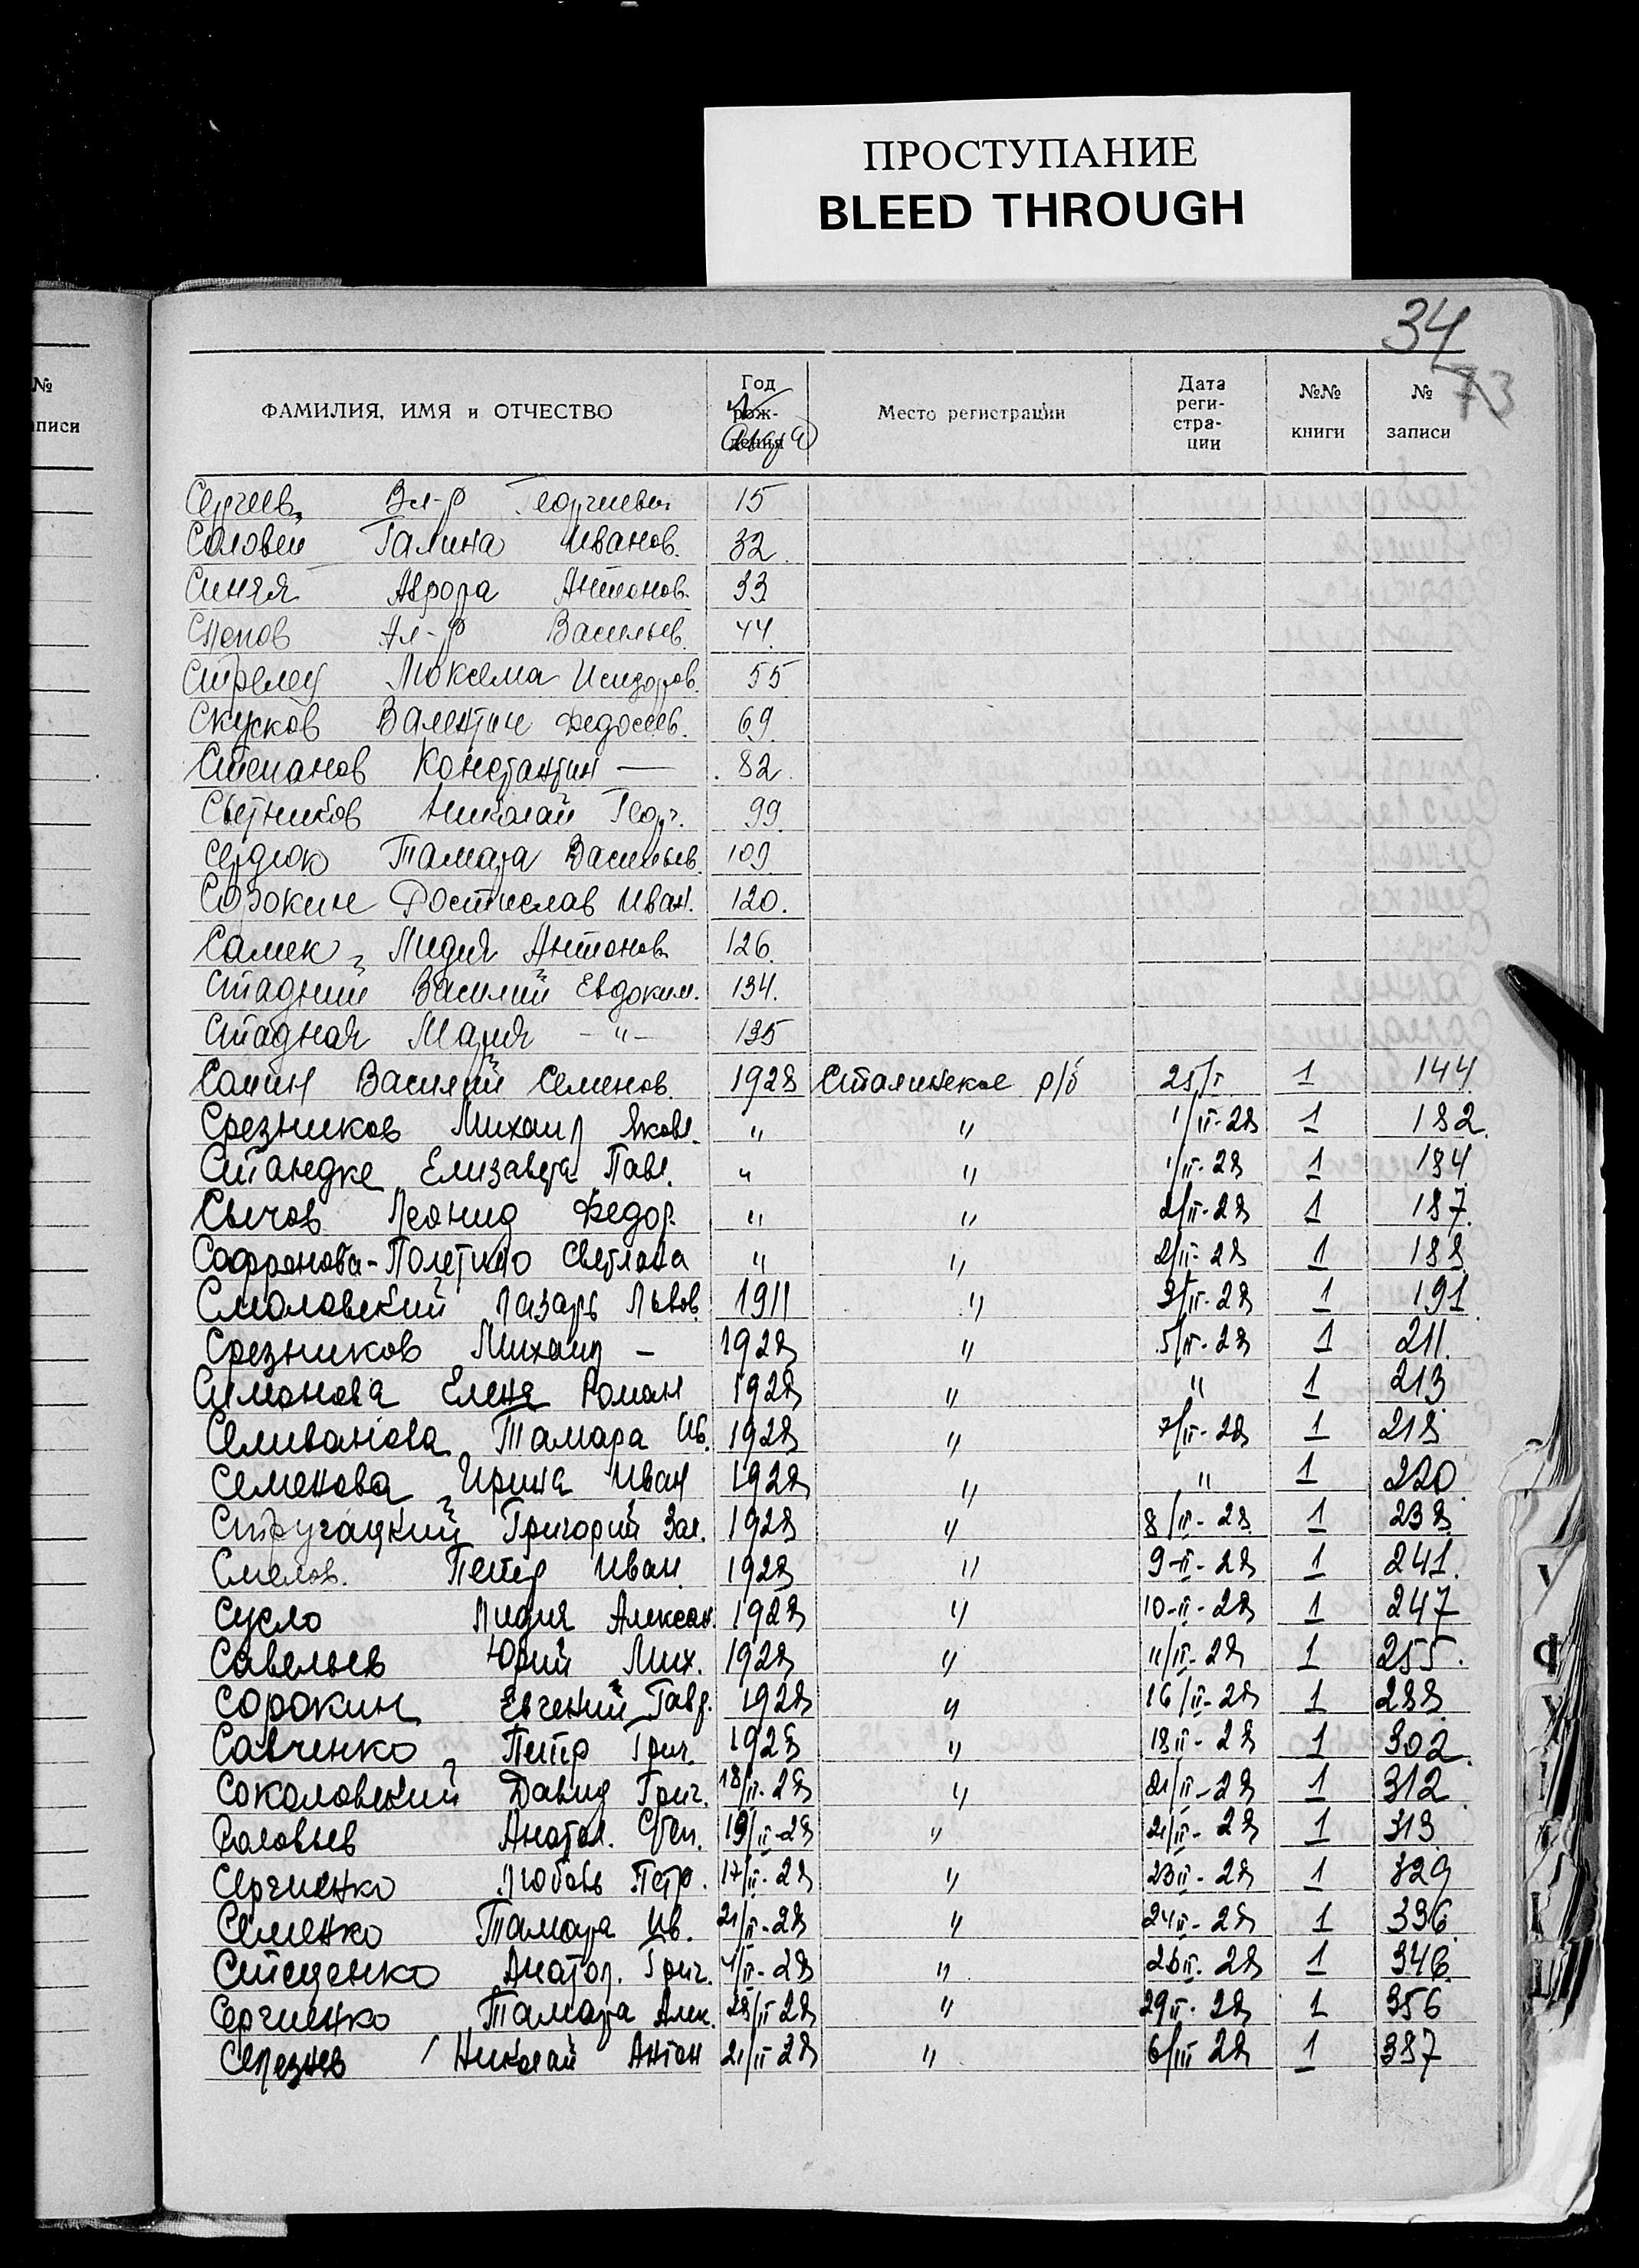 ПРОСТУПАНИЕ
BLEED THROUGH
34
73
№
записи
ФАМИЛИЯ, ИМЯ и ОТЧЕСТВО Год рождения Место регистрации Дата регистрации №№ книги № записи
Сергеев Вл-р Георгиевич 15
Соловей Галина Иванов. 32
Синяя Аврора Антонов. 33
Ал-р Васильев. 44
Стрелец Люксема Исидоров. 55
Скусков Валентин Федосеев. 69
Степанов Константин — 82
Сытников Николай Георг. 99
Сердюк Тамара Васильев. 109
Сорокин Ростислав Иван. 120.
Самек Лидия Антонов. 126
Стадний Василий Евдоким. 134.
Стадная Мария -"- 135
Сомин Василий Семенов. 1928 Сталинское р/б 25/I 1 144
Срезников Михаил Яковл. " " 1/II-28 1 182.
Стандке Елизавета Павл. " " 1/II-28 1 184
Сычов Леонид Федор. " " 2/II-28 1 187.
Софронова-Полетико Светлана " " 2/II-28 1 188
Смоловский Лазарь Львов. 1911 " 3/II-28 1 191
Срезников Михаил — 1928 " 5/II-28 1 211.
Симонова Елена Роман 1928 " " 1 213
Селиванова Тамара Ив. 1928 " 7/II-28 1 218
Семенова Ирина Иван 1928 " " 1 220
Стругацкий Григорий Зал. 1928 " 8/II-28 1 238
Смелов. Петр Иван. 1928 " 9-II-28 1 241.
Сусло Лидия Алексан. 1928 " 10-II-28 1 247
Савельев Юрий Мих. 1928 " 11/II-28 1 255.
Сорокин Евгений Гавр. 1928 " 16/II-28 1 288
Савченко Петр Григ. 1928 " 18II-28 1 302
Соколовский Давид Григ. 18/II-28 " 21/II-28 1 312
Соловьев Анатол. Степ. 19/II-28 " 21/II-28 1 313
Сергиенко Любовь Петр. 17/II-28 " 23II-28 1 329
Семенко Тамара Ив. 21/II-28 " 24II-28 1 336
Стеценко Анатол. Григ. 1/II-28 " 26II-28 1 346
Сергиенко Тамара Алек. 28/II 28 " 29II-28 1 356
Селезнев Николай Антон 21/II 28 " 6/III 28 1 387